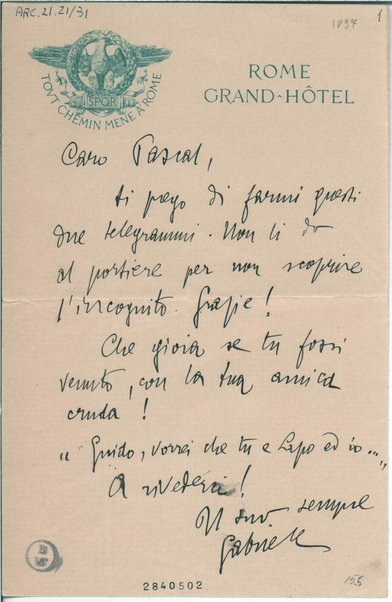 ARC.21.21/31
1
1897
SPQR
TOVT CHEMIN MENE A ROME
ROME
GRAND-HÔTEL
Caro Pascal,
ti prego di farmi questi
due telegrammi. Non li do
al portiere per non scoprire
l'incognito. Grazie!
Che gioia se tu fossi
venuto, con la tua amica
cruda!
"Guido, vorrei che tu e Lapo ed io...."
A rivederci!
Il tuo sempre
Gabriele
2840502